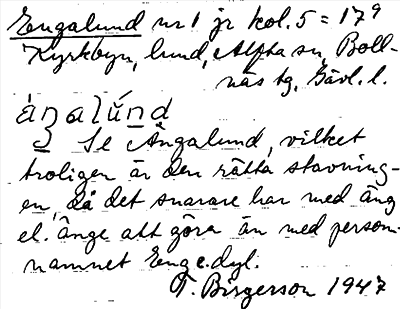 Engalund nr 1 jr kol. 5 = 17⁹
Kyrkbyn, lund, Alfta sn, Boll-
näs tg, Gävl. l.
áŋalúnd
Se Ängalund, vilket
troligen är den rätta stavning-
en, då det snarare har med äng
el. änge att göra än med person-
namnet Enge.dyl.
T. Birgerson 1947